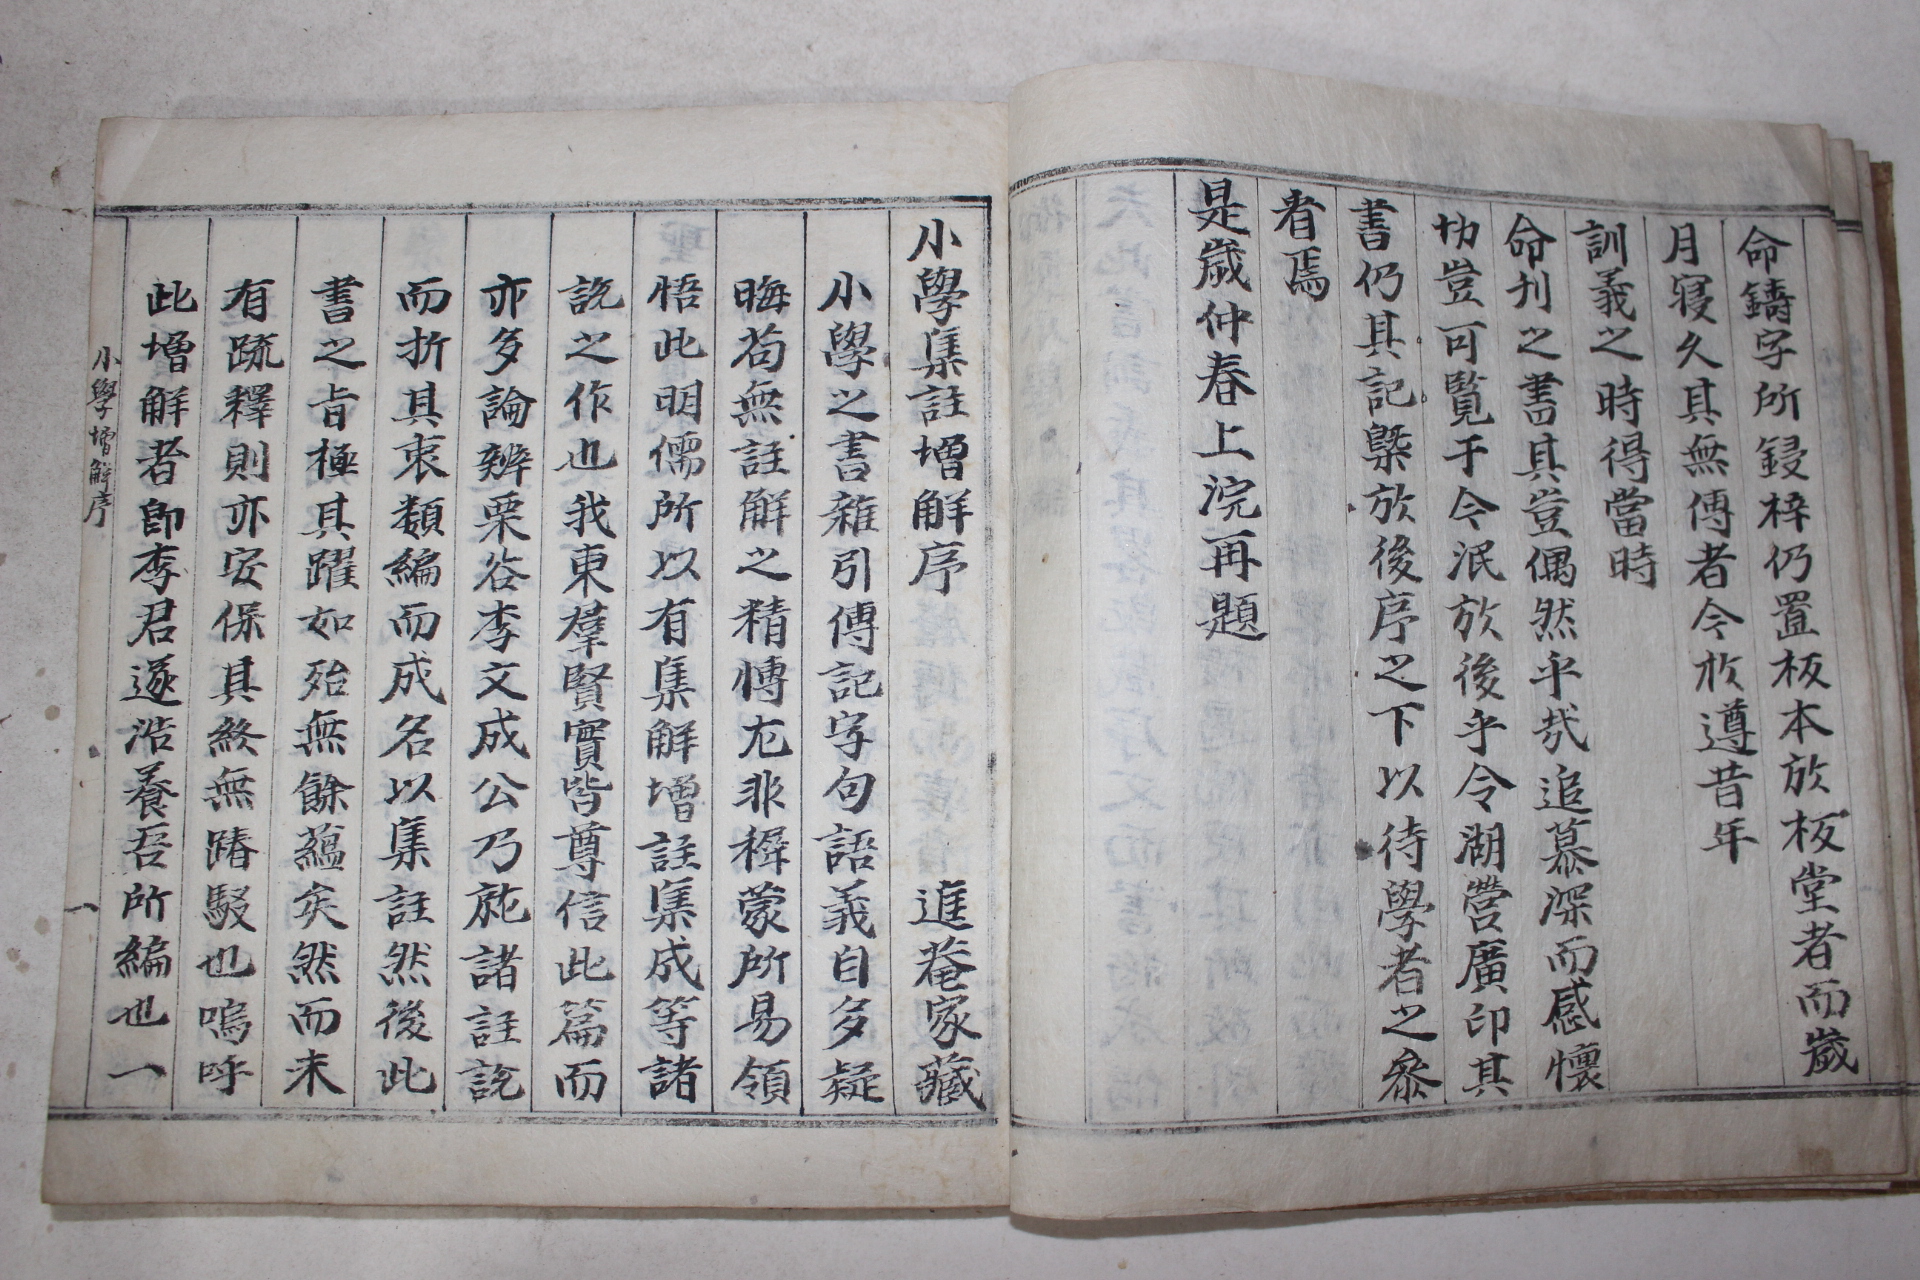 命鑄字所鋟梓仍置板本於板堂者而歲
月寢久其無傳者今於遵昔年
訓義之時得當時
命刊之書其豈偶然乎哉追慕深而感懷
切豈可覽于今泯於後乎令湖營廣印其
書仍其記槩於後序之下以待學者之叅
看焉
是歲仲春上浣再題
小學集註增解序 進菴家藏
小學之書雜引傳記字句語義自多疑
晦苟無註解之精愽尤非穉蒙所易領
悟此明儒所以有集解增註集成等諸
說之作也我東羣賢實皆尊信此篇而
亦多論辨栗谷李文成公乃就諸註說
而折其衷類編而成名以集註然後此
書之旨極其躍如殆無餘蘊矣然而未
有疏釋則亦安保其終無踳駁也嗚呼
此增解者卽李君遂浩養吾所編也一
小學增解序 一